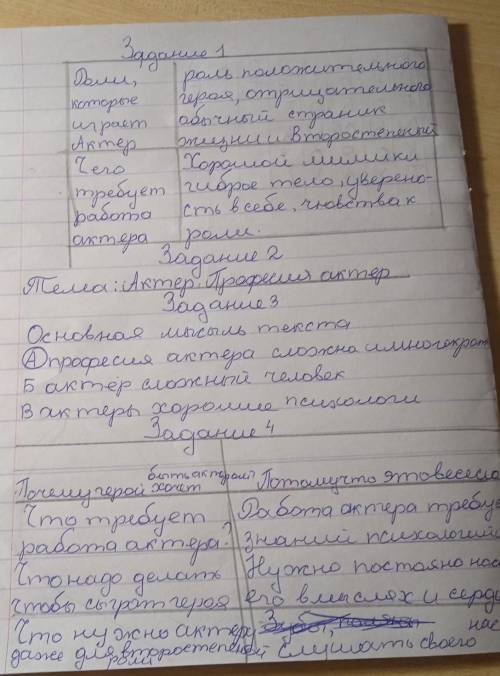 Задание 1
Роли, роль положительного
которые героя, отрицательного
играет обычный страник
Актер жизни и второстепеный
Чего Хорошой мимики
требует гиброе тело, уверено-
работа сть в себе, чювства к
актера роли.
Задание 2
Тема: Актер. Професия актер
Задание 3
Основная мысыль текста
А професия актера сложна и многократ
Б актёр сложный человек
В актеры хорошие психологи
Задание 4
быть актером
Почему герой хочет Потому что это весело
Что требует Работа актера требуе
работа актера? знаний психологии
Что надо делать Нужно постояно нос
чтобы сыграт героя его в мыслях и серд
Что нужно актеру нас
даже для второстепеной слушать своего
роли